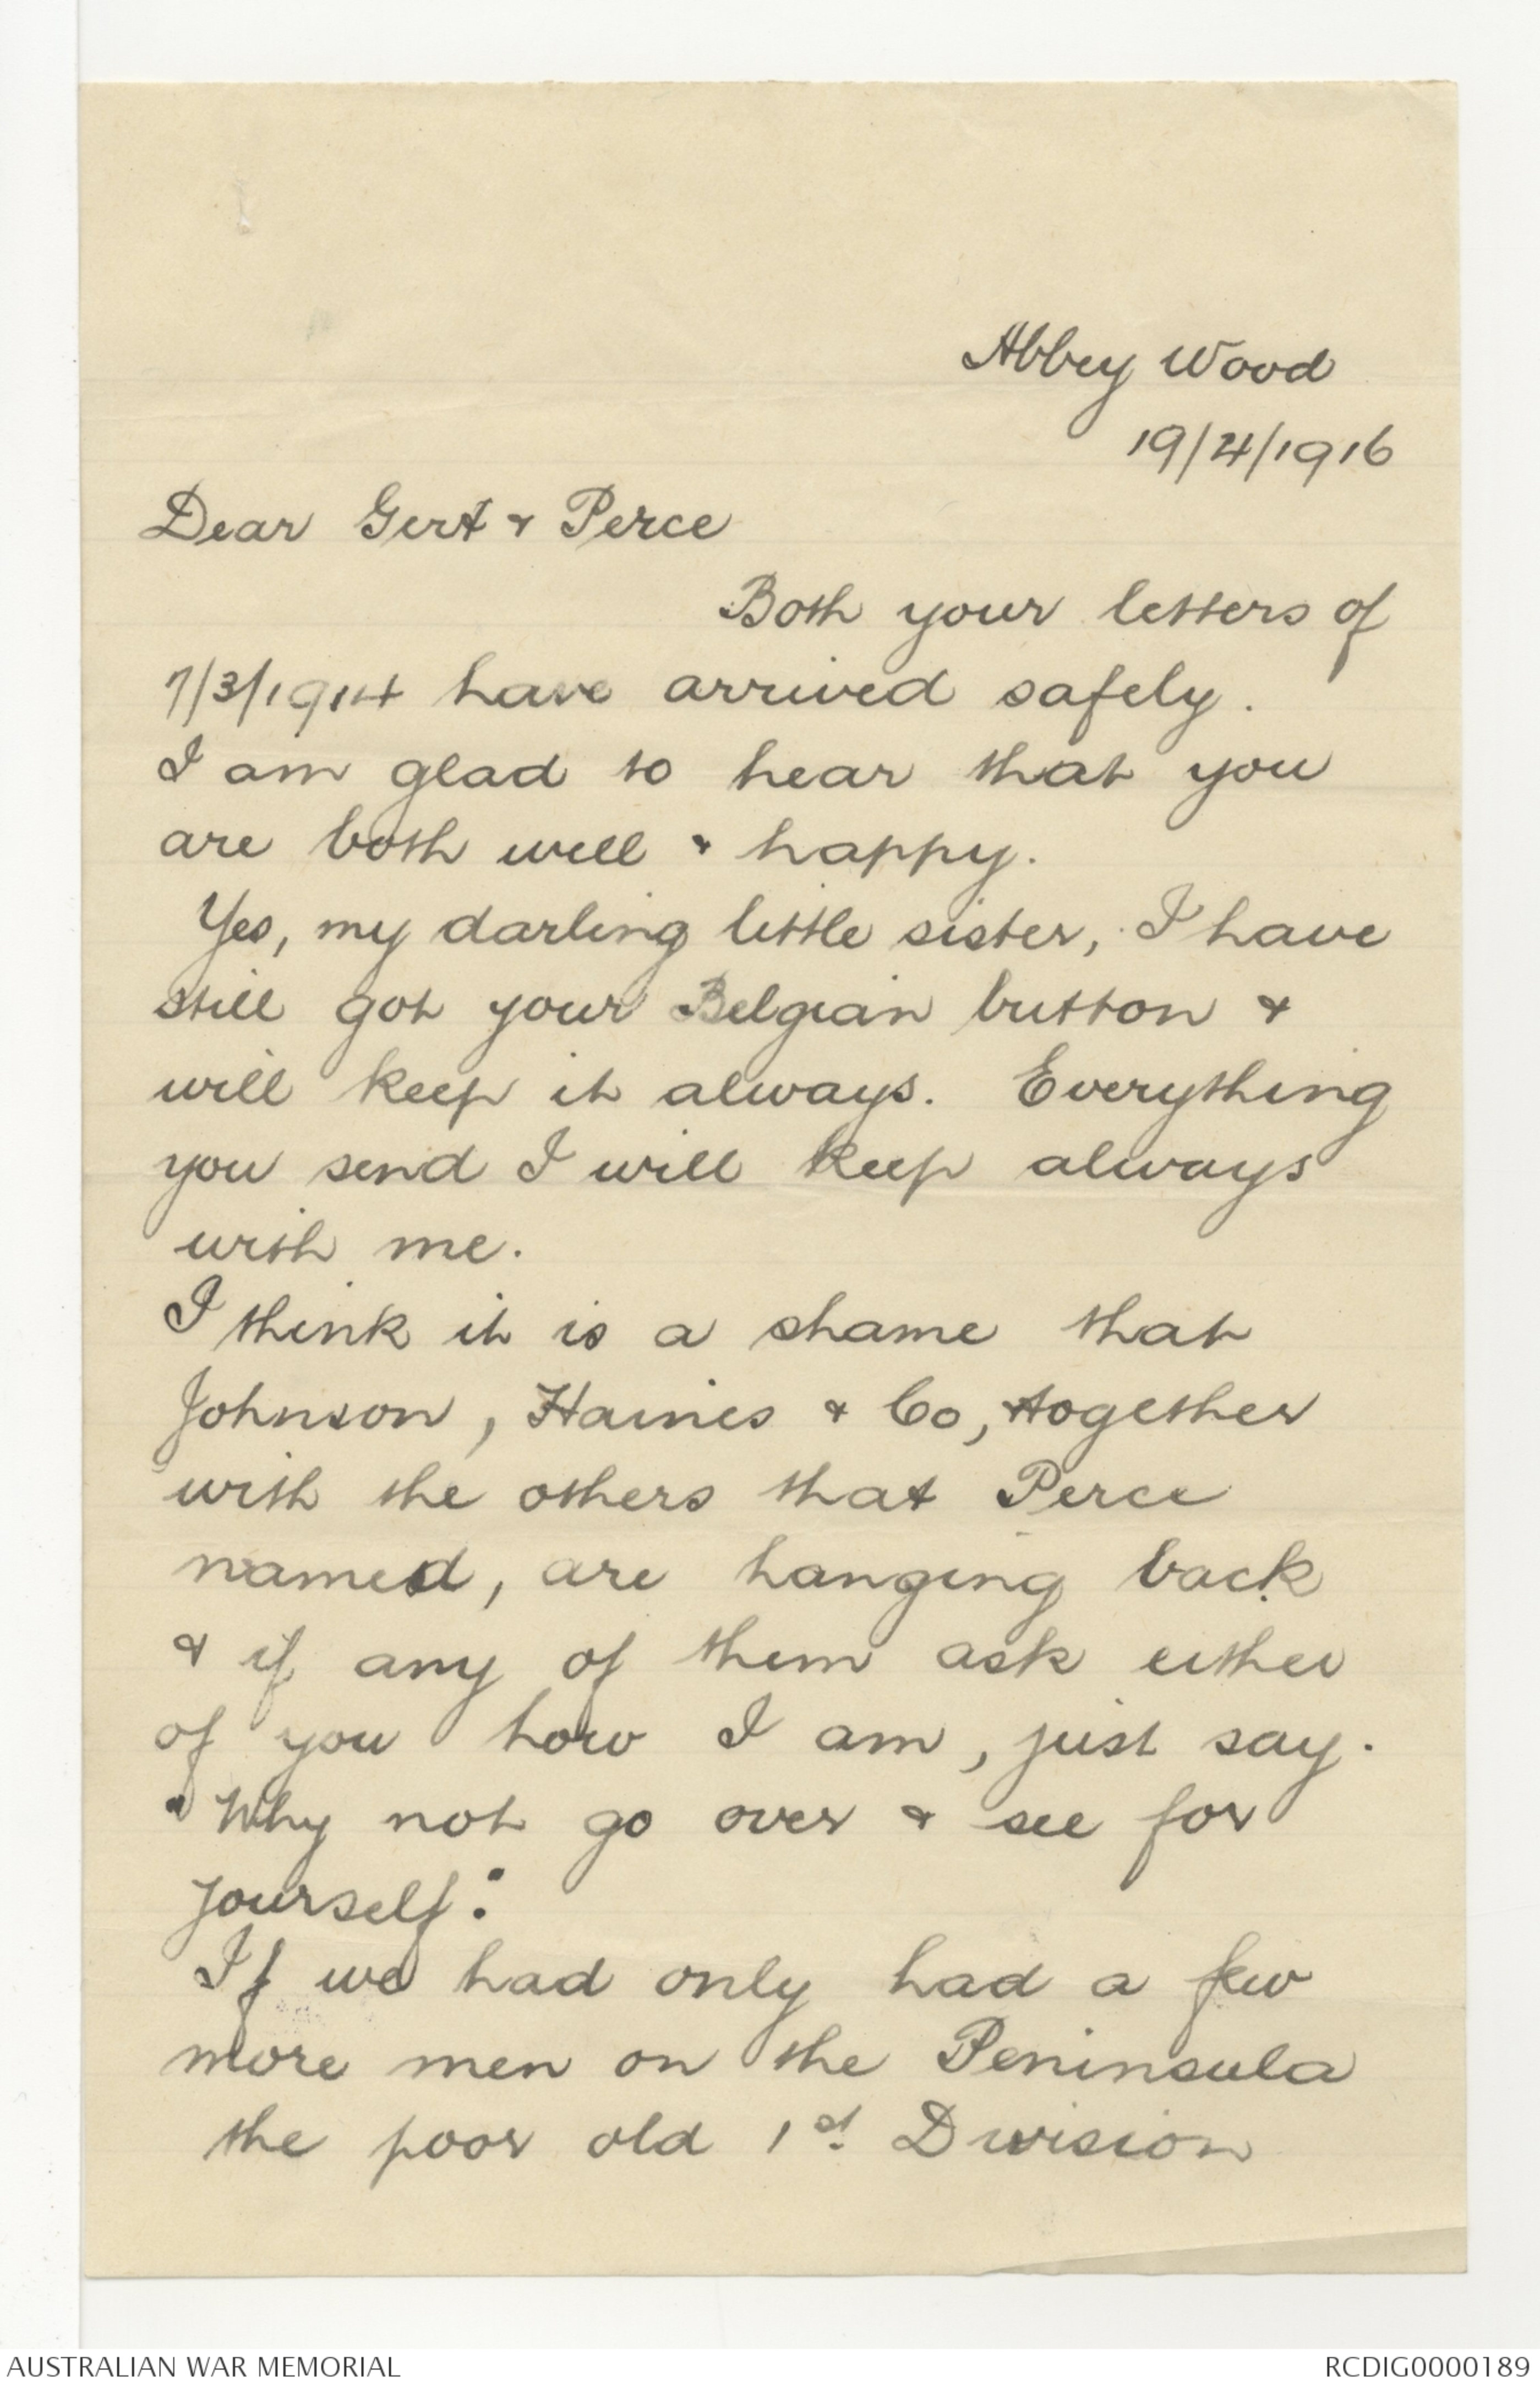 Abbey Wood
19/4/1916
Dear Gert & Perce
Both your letters of
7/3/1914 have arrived safely.
I am glad to hear that you
are both well & happy.
Yes, my darling little sister, I have
still got your Belgian button &
will keep it always. Everything
you send I will keep always
with me.
I think it is a shame that
Johnson, Haines & Co, together
with the others that Perce
named, are hanging back
& if any of them ask either
of you how I am, just say.
"Why not go over & see for
yourself."
If we had only had a few
more men on the Peninsula
the poor old 1st. Division
AUSTRALIAN WAR MEMORIAL
RCDIG0000189